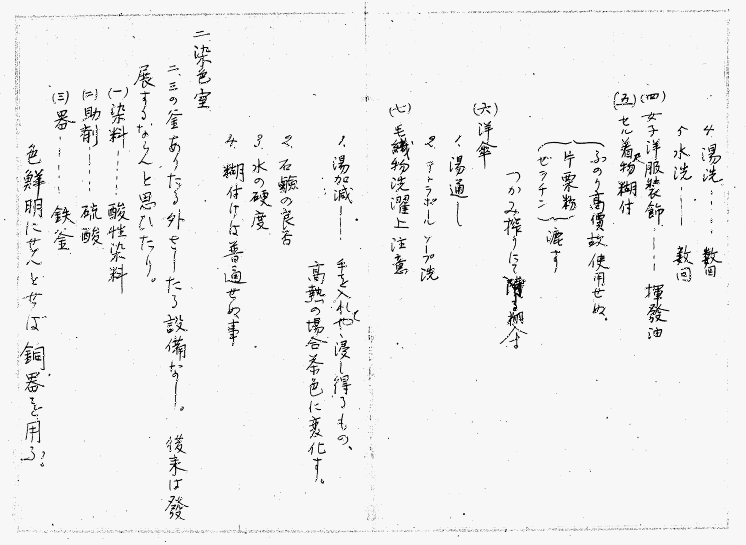 4. 湯洗……数回
5. 水洗……数回
(四) 女子洋服装飾……揮發油
(五) セル着物糊付
ふのり高價故使用せぬ。
片栗粉
ゼラチン
漉す
つかみ搾りにて
(六) 洋傘
1. 湯通し
2. ソープ洗
(七) 毛織物洗濯上注意
1. 湯加減—— 手を入れやゝ浸し得るもの、
高熱の場合茶色に変化す。
2. 石鹸の良否
3. 水の硬度
4. 糊付けは普通せぬ事
二 染色室
二、三の釜ありたる外さしたる設備なし。後来は發
展するならんと思ひたり。
(一) 染料……酸性染料
(二) 助剤……硫酸
(三) 器……鉄釜
色鮮明にせんとせば銅器を用ふ。